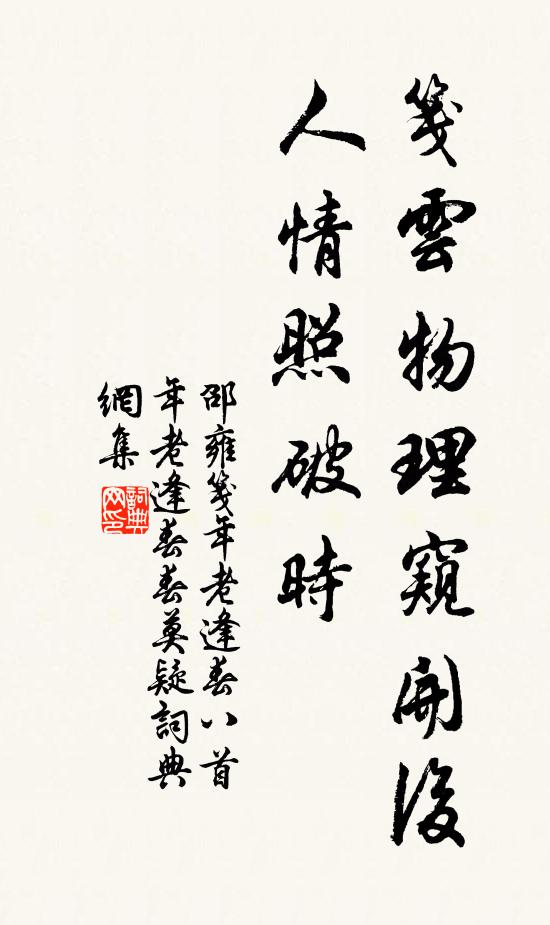 箋雲物理窺開後
人情照破時
邵雍箋年老逢春八首
年老逢春春莫疑詞典
網集
詞典網印